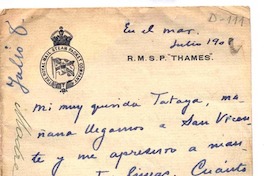 D-111
En el mar.
Julio 190
R.M.S.P. "THAMES".
ROYAL MAIL STEAM PACKET COMPANY
Julio 8
Mi muy querida Tataya, ma-
ñana llegamos a San Vicen-
te y me apresuro a man-
Cuánto